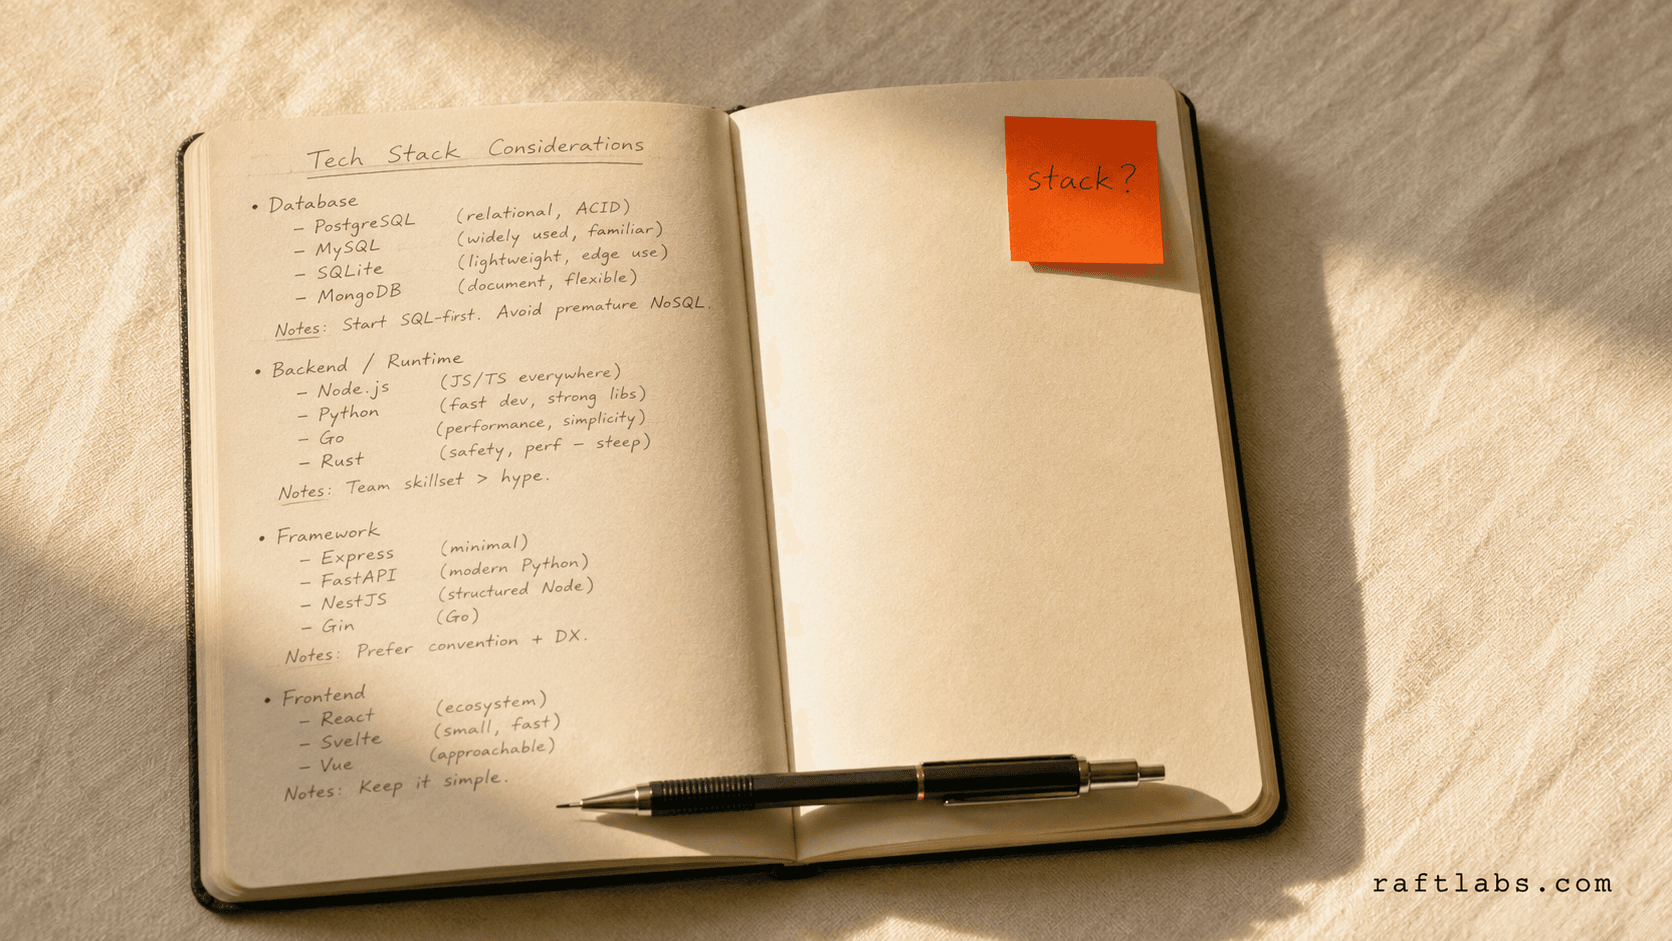 Tech Stack Considerations
• Database
– PostgreSQL (relational, ACID)
– MySQL (widely used, familiar)
– SQLite (lightweight, edge use)
– MongoDB (document, flexible)
Notes: Start SQL-first. Avoid premature NoSQL.
• Backend / Runtime
– Node.js (JS/TS everywhere)
– Python (fast dev, strong libs)
– Go (performance, simplicity)
– Rust (safety, perf – steep)
Notes: Team skillset > hype.
• Framework
– Express (minimal)
– FastAPI (modern Python)
– NestJS (structured Node)
– Gin (Go)
Notes: Prefer convention + DX.
• Frontend
– React (ecosystem)
– Svelte (small, fast)
– Vue (approachable)
Notes: Keep it simple.
stack?
raftlabs.com